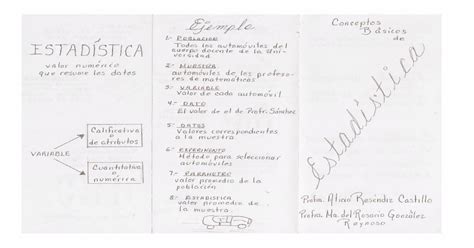 ESTADÍSTICA
valor numérico
que resume los datos
VARIABLE
Calificativa
o
de atributos
Cuantitativa
o
numérica
Ejemplo
1.- POBLACION
Todos los automóviles del
cuerpo docente de la Uni-
versidad
2.- MUESTRA
automóviles de los profeso-
res de matemáticas
3.- VARIABLE
Valor de cada automóvil
4.- DATO
El valor de el de Profr. Sánchez
5.- DATOS
Valores correspondientes
a la muestra
6.- EXPERIMENTO
Método para seleccionar
automóviles
7.- PARAMETRO
valor promedio de la
población
8.- ESTADISTICA
valor promedio de
la muestra
Conceptos
Básicos
de
Estadística
Profra. Alicia Reséndiz Castillo
Profra. Ma. del Rosario González
Reynoso